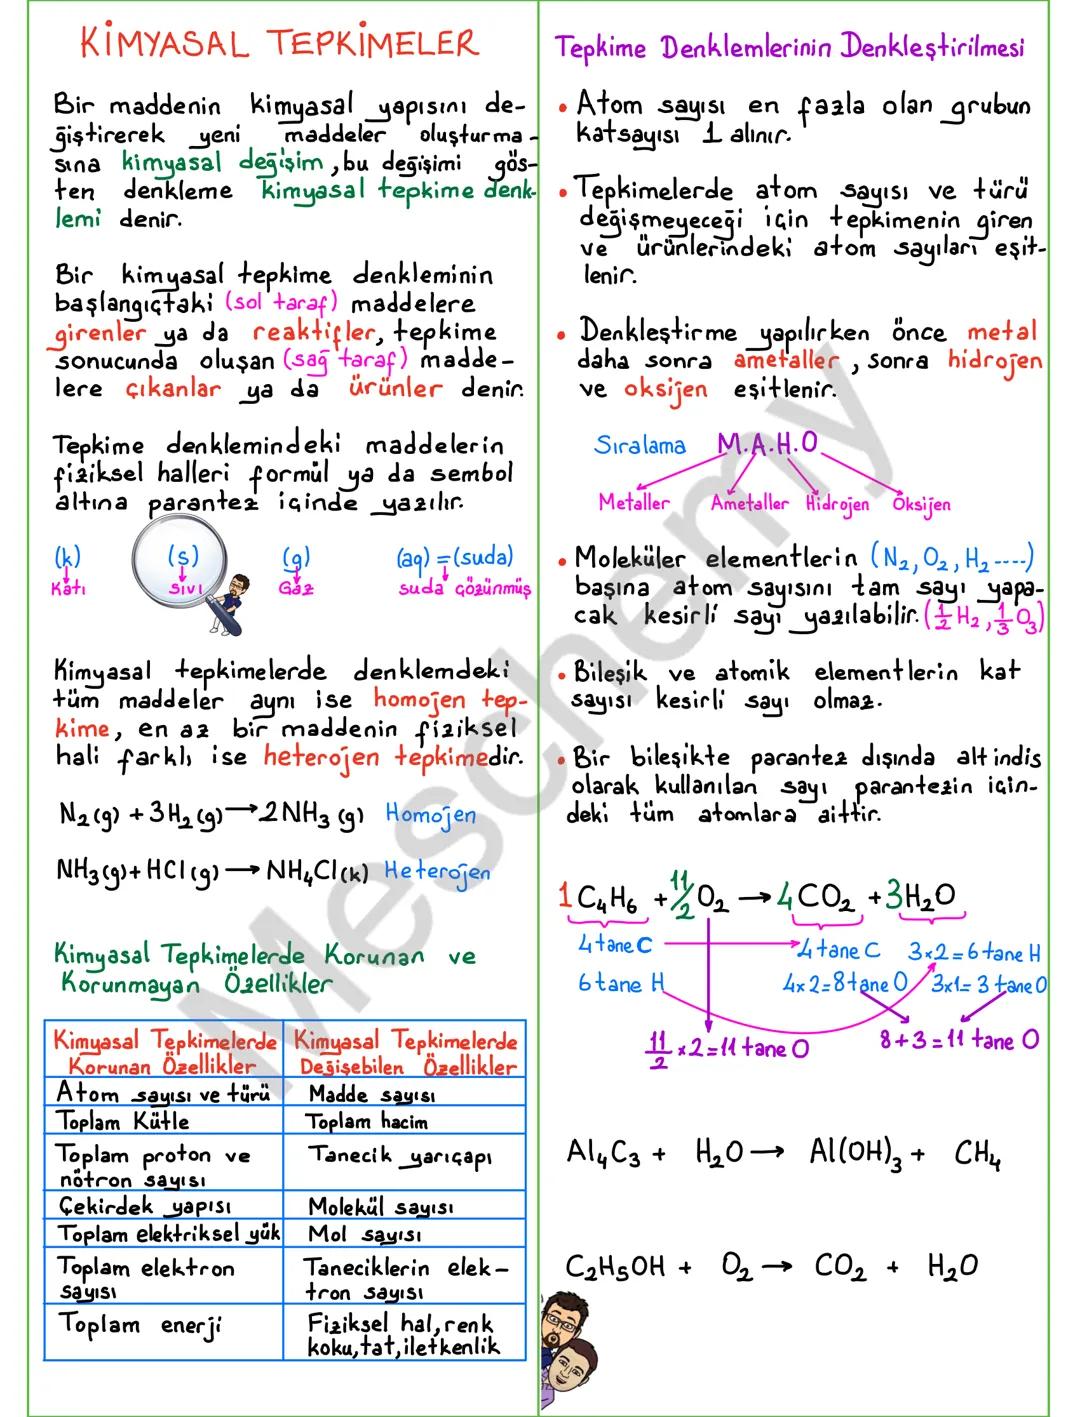 KİMYASAL TEPKİMELER
Bir maddenin kimyasal yapısını de-
ğiştirerek yeni maddeler oluşturma-
sına kimyasal değişim, bu değişimi gös-
ten denkleme kimyasal tepkime denk-
lemi denir.
Bir kimyasal tepkime denkleminin
başlangıçtaki (sol taraf) maddelere
girenler ya da reaktifler, tepkime
sonucunda oluşan (sağ taraf) madde-
lere çıkanlar ya da ürünler denir.
Tepkime denklemindeki maddelerin
fiziksel halleri formül ya da sembol
altına parantez içinde yazılır.
(k) (s) (g) (aq) = (suda)
Katı Sıvı Gaz suda çözünmüş
Kimyasal tepkimelerde denklemdeki
tüm maddeler aynı ise homojen tep-
kime, en az bir maddenin fiziksel
hali farklı ise heterojen tepkimedir.
N₂(g) + 3H₂(g) → 2NH₃(g) Homojen
NH₃(g) + HCl(g) → NH₄Cl(k) Heterojen
Kimyasal Tepkimelerde Korunan ve
Korunmayan Özellikler
Kimyasal Tepkimelerde Kimyasal Tepkimelerde
Korunan Özellikler Değişebilen Özellikler
Atom sayısı ve türü Madde sayısı
Toplam Kütle Toplam hacim
Toplam proton ve Tanecik yarıçapı
nötron sayısı
Çekirdek yapısı Molekül sayısı
Toplam elektriksel yük Mol sayısı
Toplam elektron Taneciklerin elek-
sayısı tron sayısı
Toplam enerji Fiziksel hal, renk
koku, tat, iletkenlik
Tepkime Denklemlerinin Denkleştirilmesi
• Atom sayısı en fazla olan grubun
katsayısı 1 alınır.
• Tepkimelerde atom sayısı ve türü
değişmeyeceği için tepkimenin giren
ve ürünlerindeki atom sayıları eşit-
lenir.
• Denkleştirme yapılırken önce metal
daha sonra ametaller, sonra hidrojen
ve oksijen eşitlenir.
Sıralama M.A.H.O
Metaller Ametaller Hidrojen Oksijen
• Moleküler elementlerin (N₂, O₂, H₂----)
başına atom sayısını tam sayı yapa-
cak kesirli sayı yazılabilir. (1/2 H₂, 1/3 O₃)
• Bileşik ve atomik elementlerin kat
sayısı kesirli sayı olmaz.
• Bir bileşikte parantez dışında alt indis
olarak kullanılan sayı parantezin için-
deki tüm atomlara aittir.
1C₄H₆ + 11/2 O₂ → 4CO₂ + 3H₂O
4 tane C 4 tane C 3x2=6 tane H
6 tane H 4x2=8 tane O 3x1=3 tane O
11/2 x2=11 tane O 8+3=11 tane O
Al₄C₃ + H₂O → Al(OH)₃ + CH₄
C₂H₅OH + O₂ → CO₂ + H₂O
Meschemy